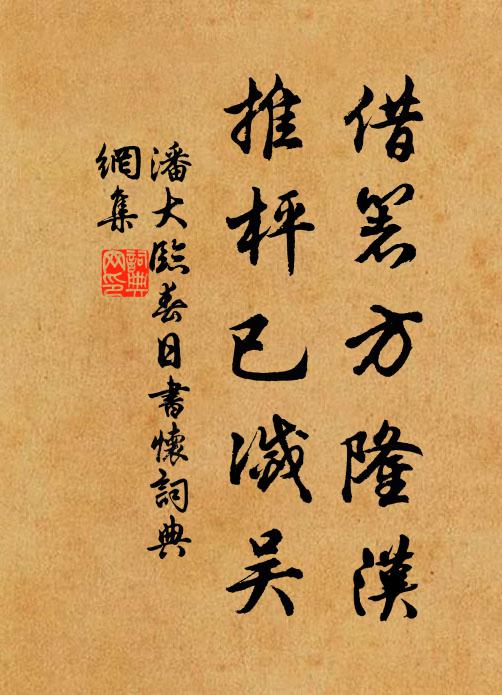 借箸方隆漢
推枰已滅吴
潘大臨春日書懷詞典
網集
詞典网印